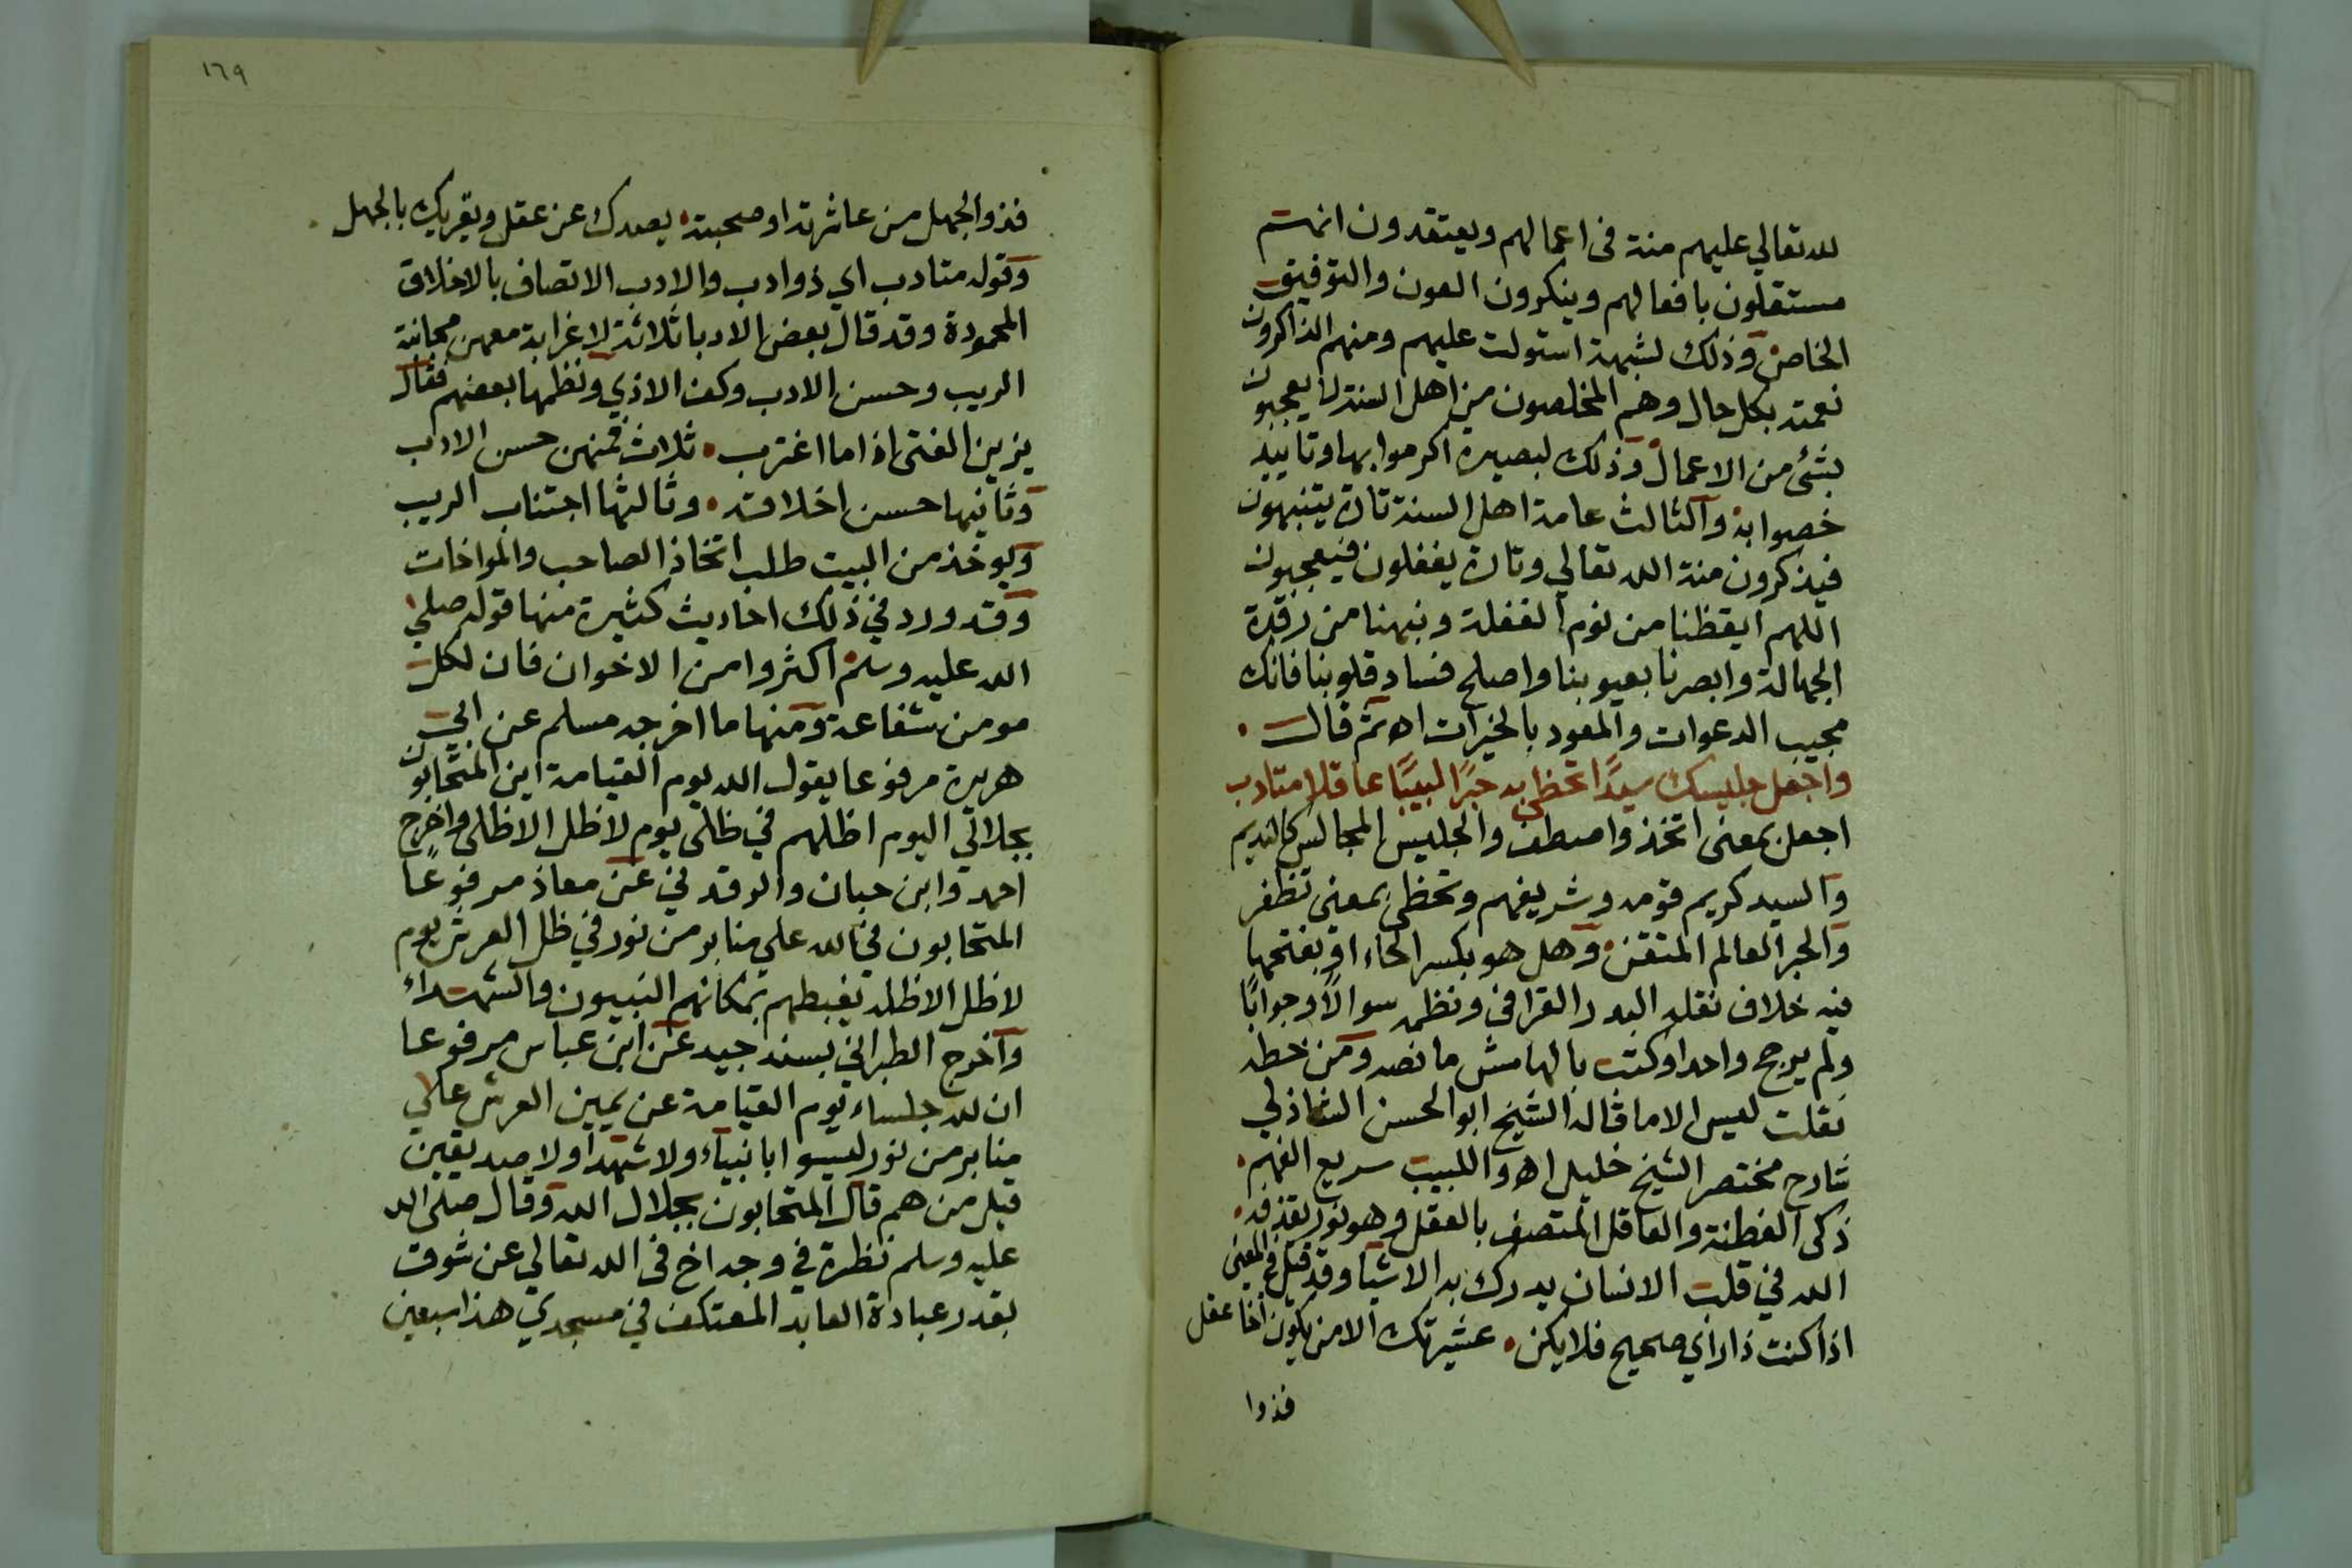 لله تعالي عليهم منة فى اعمالهم ويعتقدون انهم
مستقلون بافعالهم وينكرون العون والتوفيق
الخاص وذلك لشبهة استولت عليهم ومنهم الذاكرون
نعمته بكل حال وهم المخلصون من اهل السنة لا يعجبون
بشئ من الاعمال وذلك لبصيرة اكرموا بها وتاييد
خصوا به والثالث عامة اهل السنة تارة يتنبهون
فيذكرون منة الله تعالي وتارة يغفلون فيعجبون
اللهم ايقظنا من نوم الغفلة ونبهنا من رقدة
الجهالة وابصرنا بعيوبنا واصلح فساد قلوبنا فانك
مجيب الدعوات والمعود بالخيرات اه ثم قال
واجعل جليسك سيدًا تحظى به حبرًا لبيبًا عاقلا متادب
اجعل بمعنى اتخذ واصطف والجليس المجالس كالنديم
والسيد كريم قومه وشريفهم وتحظى بمعنى تظفر
والحبر العالم المتقن وهل هو بكسر الحاء او بفتحها
فيه خلاف نقله البدر القرافى ونظمه سوالًا وجوابًا
ولم يرجح واحدا وكتب بالهامش ما نصه ومن خطه
نقلت لعيس الاما قاله الشيخ ابو الحسن الشاذلي
شارح مختصر الشيخ خليل اه واللبيب سريع الفهم
ذكى الفطنة والعاقل المتصف بالعقل وهو نور يقذفه
الله في قلب الانسان يدرك به الاشيا وقد قيل في المعنى
اذا كنت ذا راي صحيح فلا يكن عشيرتك الا من يكون اخا عقل
فذوا
١٦٩
فذوا الجهل من عاشرته او صحبته يصدك عن عقل ويغريك بالجهل
وقوله متادب اي ذو ادب والادب الاتصاف بالاخلاق
المحمودة وقد قال بعض الادبا ثلاثة لا غرابة معهن مجانبة
الريب وحسن الادب وكف الاذي ونظمها بعضهم فقال
يزين الفتى اذا ما اغترب ثلاث فمنهن حسن الادب
وثانيها حسن اخلاقه وثالثها اجتناب الريب
ويوخذ من البيت طلب اتخاذ الصاحب والمواخات
وقد ورد في ذلك احاديث كثيرة منها قوله صلي
الله عليه وسلم اكثروا من الاخوان فان لكل
مومن شفاعة ومنها ما اخرجه مسلم عن ابي
هريرة مرفوعا يقول الله يوم القيامة اين المتحابون
بجلالي اليوم اظلهم في ظلى يوم لا ظل الا ظلى واخرج
احمد وابن حبان والرقد ني عن معاذ مرفوعًا
المتحابون في الله علي منابر من نور في ظل العرش يوم
لا ظل الا ظله يغبطهم بمكانهم النبيون والشهداء
واخرج الطبراني بسند جيد عن ابن عباس مرفوعا
ان لله جلساء يوم القيامة عن يمين العرش علي
منابر من نور ليسوا بانبياء ولا شهدا ولا صديقين
قيل من هم قال المتحابون بجلال الله وقال صلى الله
عليه وسلم نظرة في وجه اخ فى الله تعالي عن شوق
بقدر عبادة العابد المعتكف في مسجدي هذا سبعين